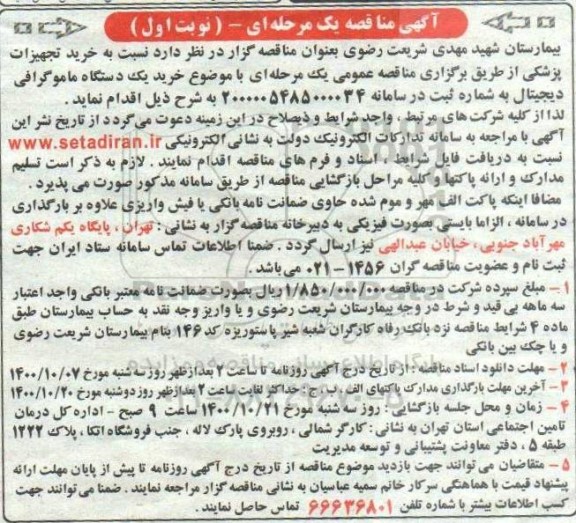 آگهی مناقصه یک مرحله ای - ( نوبت اول )
بیمارستان شهید مهدی شریعت رضوی بعنوان مناقصه گزار در نظر دارد نسبت به خرید تجهیزات
پزشکی از طریق برگزاری مناقصه عمومی یک مرحله ای با موضوع خرید یک دستگاه ماموگرافی
دیجیتال به شماره ثبت در سامانه ۲۰۰۰۰۰۵۴۸۵۰۰۰۰۳۴ به شرح ذیل اقدام نماید .
لذا از کلیه شرکت های مرتبط ، واجد شرایط و ذیصلاح در این زمینه دعوت می گردد از تاریخ نشر این
آگهی با مراجعه به سامانه تدارکات الکترونیک دولت به نشانی الکترونیکی www.setadiran.ir
نسبت به دریافت فایل شرایط ، اسناد و فرم های مناقصه اقدام نمایند . لازم به ذکر است تسلیم
مدارک و ارائه پاکتها و کلیه مراحل بازگشایی مناقصه از طریق سامانه مذکور صورت می پذیرد .
مضافا اینکه پاکت الف مهر و موم شده حاوی ضمانت نامه بانکی یا فیش واریزی علاوه بر بارگذاری
در سامانه ، الزاما بایستی بصورت فیزیکی به دبیرخانه مناقصه گزار به نشانی : تهران ، پایگاه یکم شکاری
مهرآباد جنوبی ، خیابان عبدالهی نیز ارسال گردد . ضمنا اطلاعات تماس سامانه ستاد ایران جهت
ثبت نام و عضویت مناقصه گران ۱۴۵۶ - ۰۲۱ می باشد .
۱ - مبلغ سپرده شرکت در مناقصه ۱/۸۵۰/۰۰۰/۰۰۰ ریال بصورت ضمانت نامه معتبر بانکی واجد اعتبار
سه ماهه بی قید و شرط در وجه بیمارستان شریعت رضوی و یا واریز وجه نقد به حساب بیمارستان طبق
ماده ۴ شرایط مناقصه نزد بانک رفاه کارگران شعبه شیر پاستوریزه کد ۱۴۶ بنام بیمارستان شریعت رضوی
و یا چک بین بانکی
۲ - مهلت دانلود اسناد مناقصه : از تاریخ درج آگهی روزنامه تا ساعت ۲ بعدازظهر روز سه شنبه مورخ ۱۴۰۰/۱۰/۰۷
۳ - آخرین مهلت بارگذاری مدارک پاکتهای الف و ب و ج : حداکثر لغایت ساعت ۲ بعدازظهر روز دوشنبه مورخ ۱۴۰۰/۱۰/۲۰
۴ - زمان و محل جلسه بازگشایی : روز سه شنبه مورخ ۱۴۰۰/۱۰/۲۱ ساعت ۹ صبح - اداره کل درمان
تامین اجتماعی استان تهران به نشانی : کارگر شمالی ، روبروی پارک لاله ، جنب فروشگاه اتکا ، پلاک ۱۲۲۲
طبقه ۵ ، دفتر معاونت پشتیبانی و توسعه مدیریت
۵ - متقاضیان می توانند جهت بازدید موضوع مناقصه از تاریخ درج آگهی روزنامه تا پیش از پایان مهلت ارائه
پیشنهاد قیمت با هماهنگی سرکار خانم سمیه عباسیان به نشانی مناقصه گزار مراجعه نمایند . ضمنا می توانند جهت
کسب اطلاعات بیشتر با شماره تلفن ۶۶۶۳۶۸۰۱ تماس حاصل نمایند .